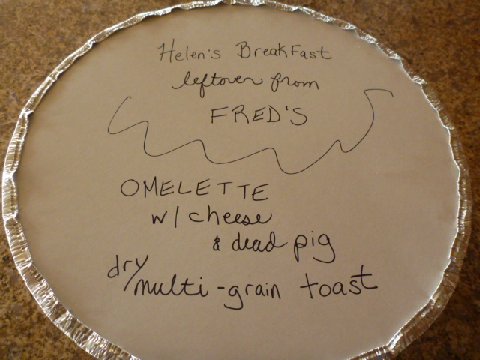 Helen's BreakFast
leftover from
FRED'S
OMELETTE
w/ cheese
& dead pig
dry multi-grain toast